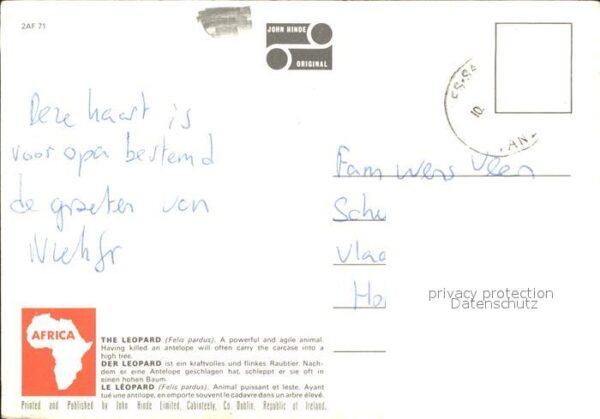 2AF 71
JOHN HINDE
ORIGINAL
Deze kaart is
voor opa bestemd
de groeten van
10.
AN
Fam
Schu
Vlaa
Ho
privacy protection
Datenschutz
AFRICA
THE LEOPARD (Felis pardus). A powerful and agile animal.
Having killed an antelope will often carry the carcase into a
high tree.
DER LEOPARD ist ein kraftvolles und flinkes Raubtier. Nach-
dem er eine Antelope geschlagen hat, schleppt er sie oft in
einen hohen Baum.
LE LÉOPARD (Felis pardus). Animal puissant et leste. Ayant
tué une antilope, en emporte souvent le cadavre dans un arbre élevé.
Printed and Published by John Hinde Limited, Cabinteely, Co. Dublin, Republic of Ireland.